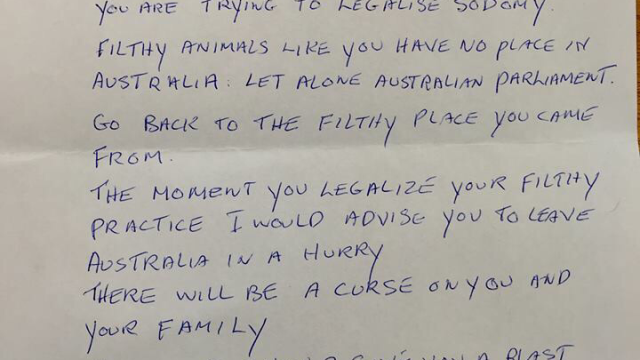 YOU ARE TRYING TO LEGALISE SODOMY.
FILTHY ANIMALS LIKE YOU HAVE NO PLACE IN
AUSTRALIA. LET ALONE AUSTRALIAN PARLIAMENT.
GO BACK TO THE FILTHY PLACE YOU CAME
FROM.
THE MOMENT YOU LEGALIZE YOUR FILTHY
PRACTICE I WOULD ADVISE YOU TO LEAVE
AUSTRALIA IN A HURRY
THERE WILL BE A CURSE ON YOU AND
YOUR FAMILY
A BLAST